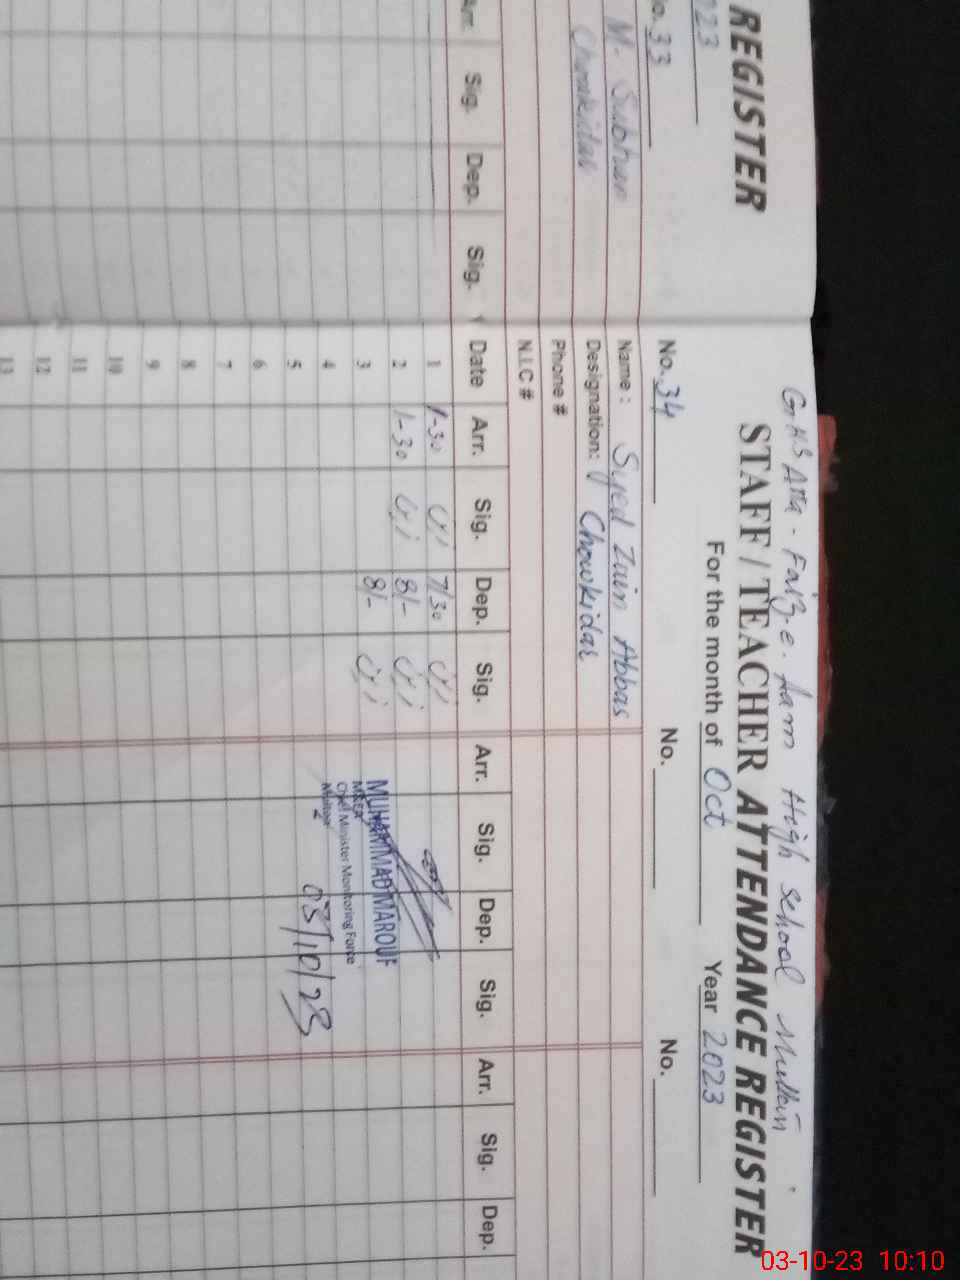 REGISTER
023
No. 33
M. Subhan
Chowkidar
Arr. Sig. Dep. Sig.
GHS Atta - Faiz-e-Aam High School Multan
STAFF / TEACHER ATTENDANCE REGISTER
For the month of Oct Year 2023
No. 34 No. No.
Name: Syed Zain Abbas
Designation: Chowkidar
Phone #
N.I.C #
Date Arr. Sig. Dep. Sig. Arr. Sig. Dep. Sig. Arr. Sig. Dep.
1 1-30 7/30
2 1-30 8/-
3 8/-
4
5
6
7
8
9
10
11
12
13
MUHAMMAD MAROUF
MEA
Chief Minister Monitoring Force
Multan
03/10/23
03-10-23 10:10